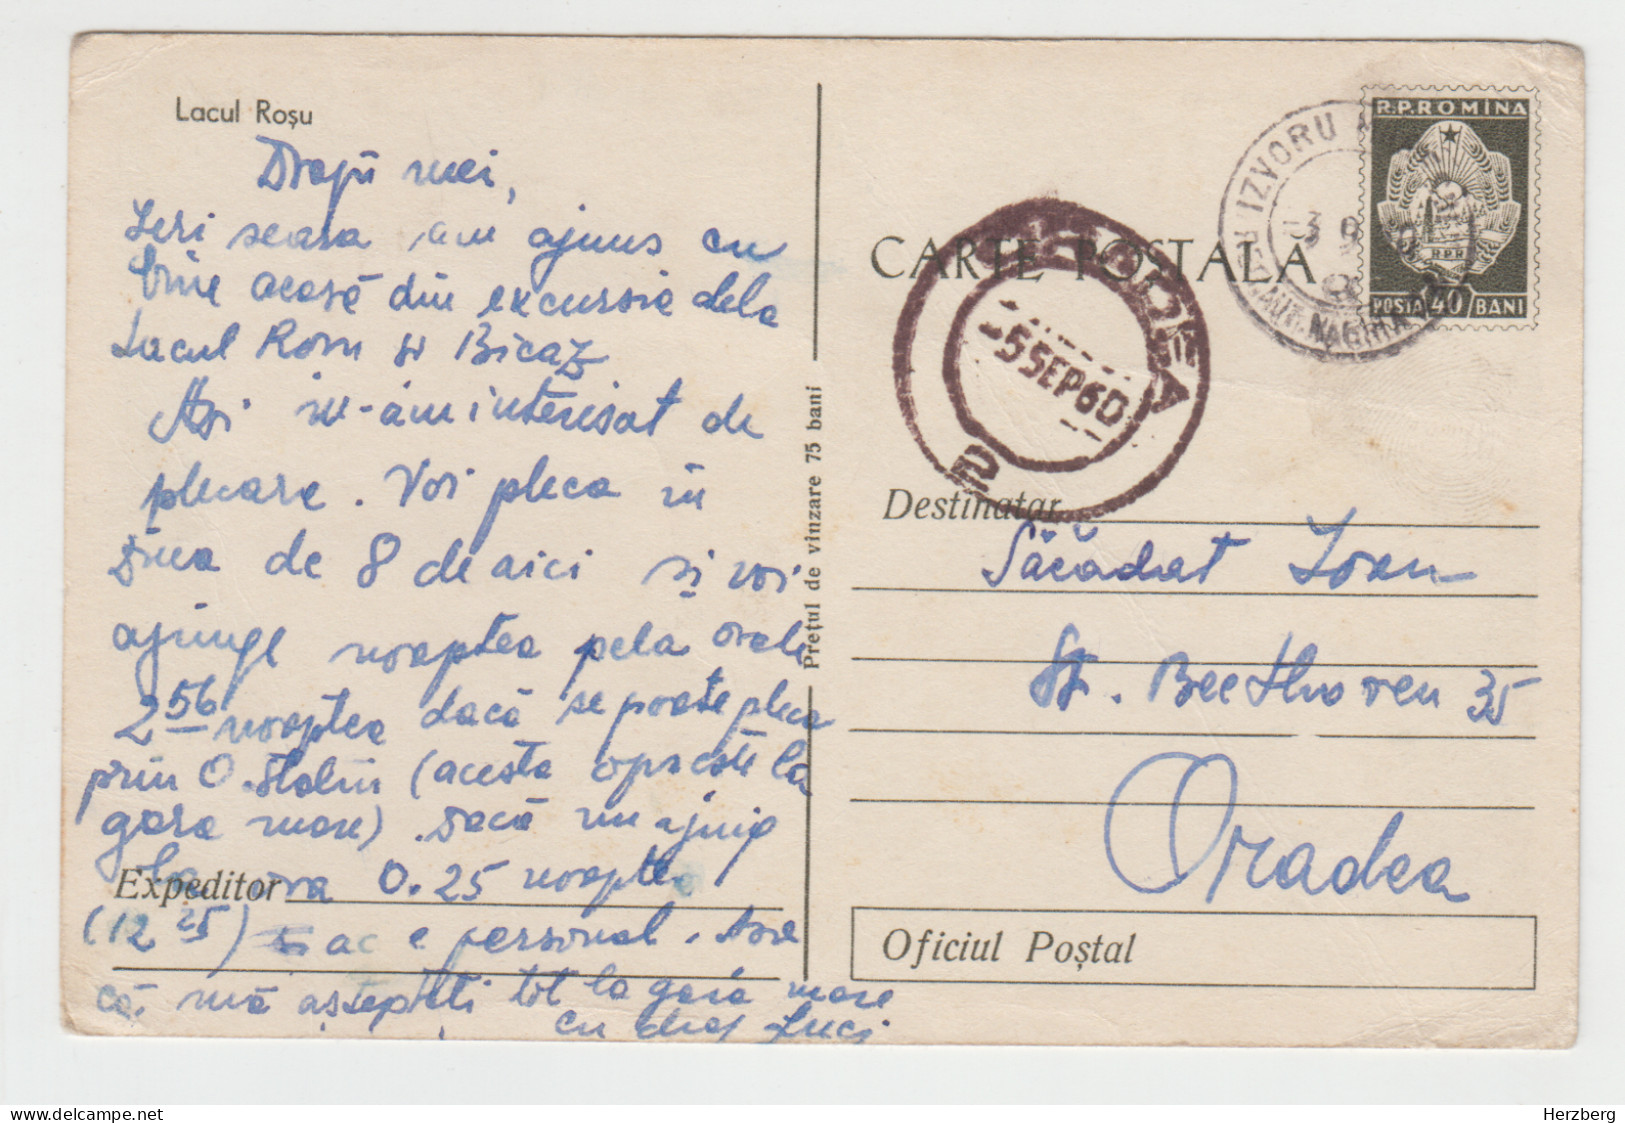 Lacul Roșu
Dragii mei,
Ieri seara am ajuns cu
bine acasă din excursie dela
Lacul Rosu si Bicaz
Asi m-am interesat de
plecare. Voi pleca în
ziua de 8 de aici si voi
ajunge noaptea pela orele
2 56 noaptea dacă se poate pleca
prin O. Stalin (acesta opreste la
gara mare). Dacă nu ajung
la ora 0.25 noaptea
Expeditor
(12 25) ac e personal. Asa
că, mă așteptati tot la gara mare
cu drag Luci
Prețul de vînzare 75 bani
CARTE POSTALA
R.P.ROMINA
R.P.R.
POSTA 40 BANI
IZVORU
3 9
ORADEA
-5SEP60
2
Destinatar
Săcădat Ioan
St. Beethoven 35
Oradea
Oficiul Poștal
Herzberg